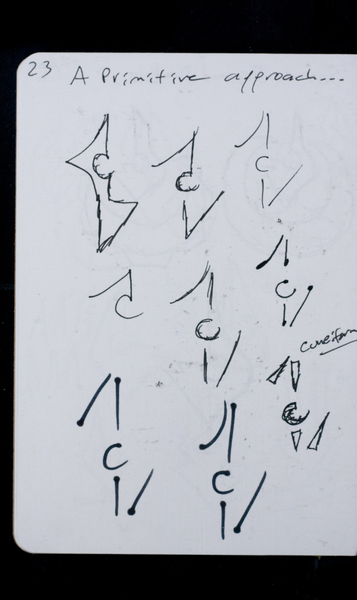 23 A Primitive approach...
cuneiform